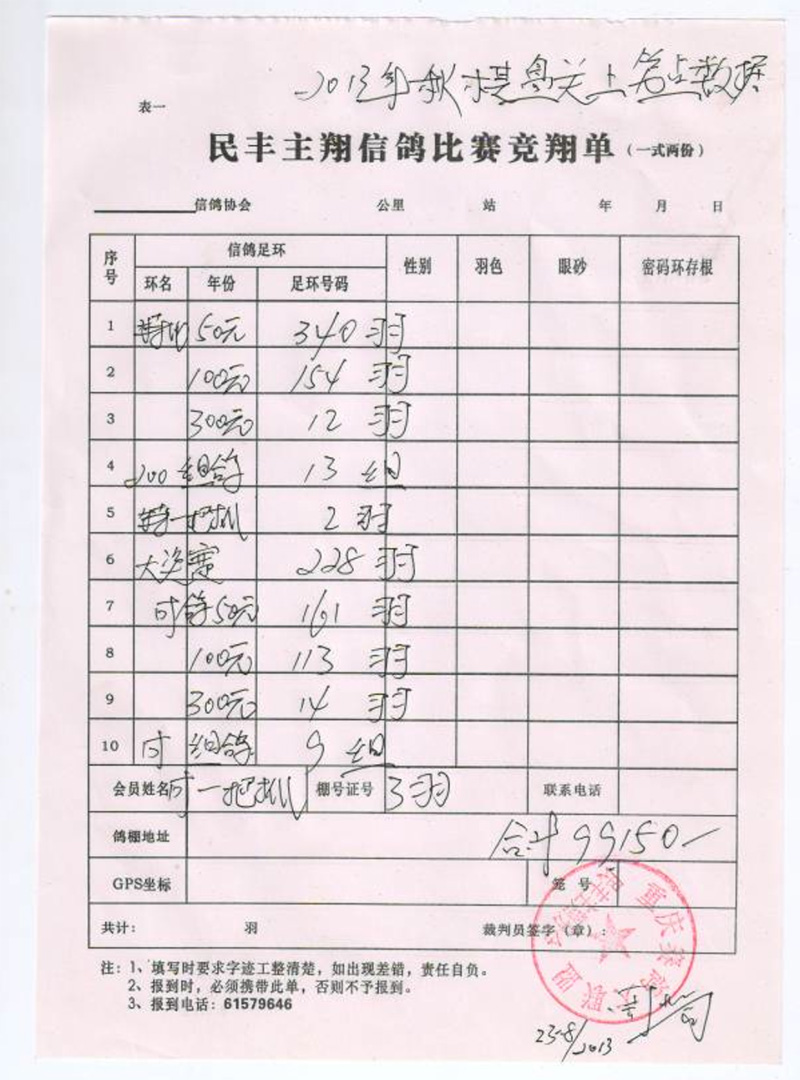 2013年秋棋盘关上笼数据
表一
民丰主翔信鸽比赛竞翔单（一式两份）
信鸽协会 公里 站 年 月 日
序号 信鸽足环 性别 羽色 眼砂 密码环存根
环名 年份 足环号码
1 特比 50元 340羽
2 100元 154羽
3 300元 12羽
4 200组鸽 13组
5 特一把抓 2羽
6 大决赛 228羽
7 对鸽50元 161羽
8 100元 113羽
9 300元 14羽
10 对 组鸽 9组
会员姓名 对一把抓 棚号证号 3羽 联系电话
鸽棚地址 合计99150-
GPS坐标 笼号
共计： 羽 裁判员签字（章）：
注：1、填写时要求字迹工整清楚，如出现差错，责任自负。
2、报到时，必须携带此单，否则不予报到。
3、报到电话：61579646
23-8/2013